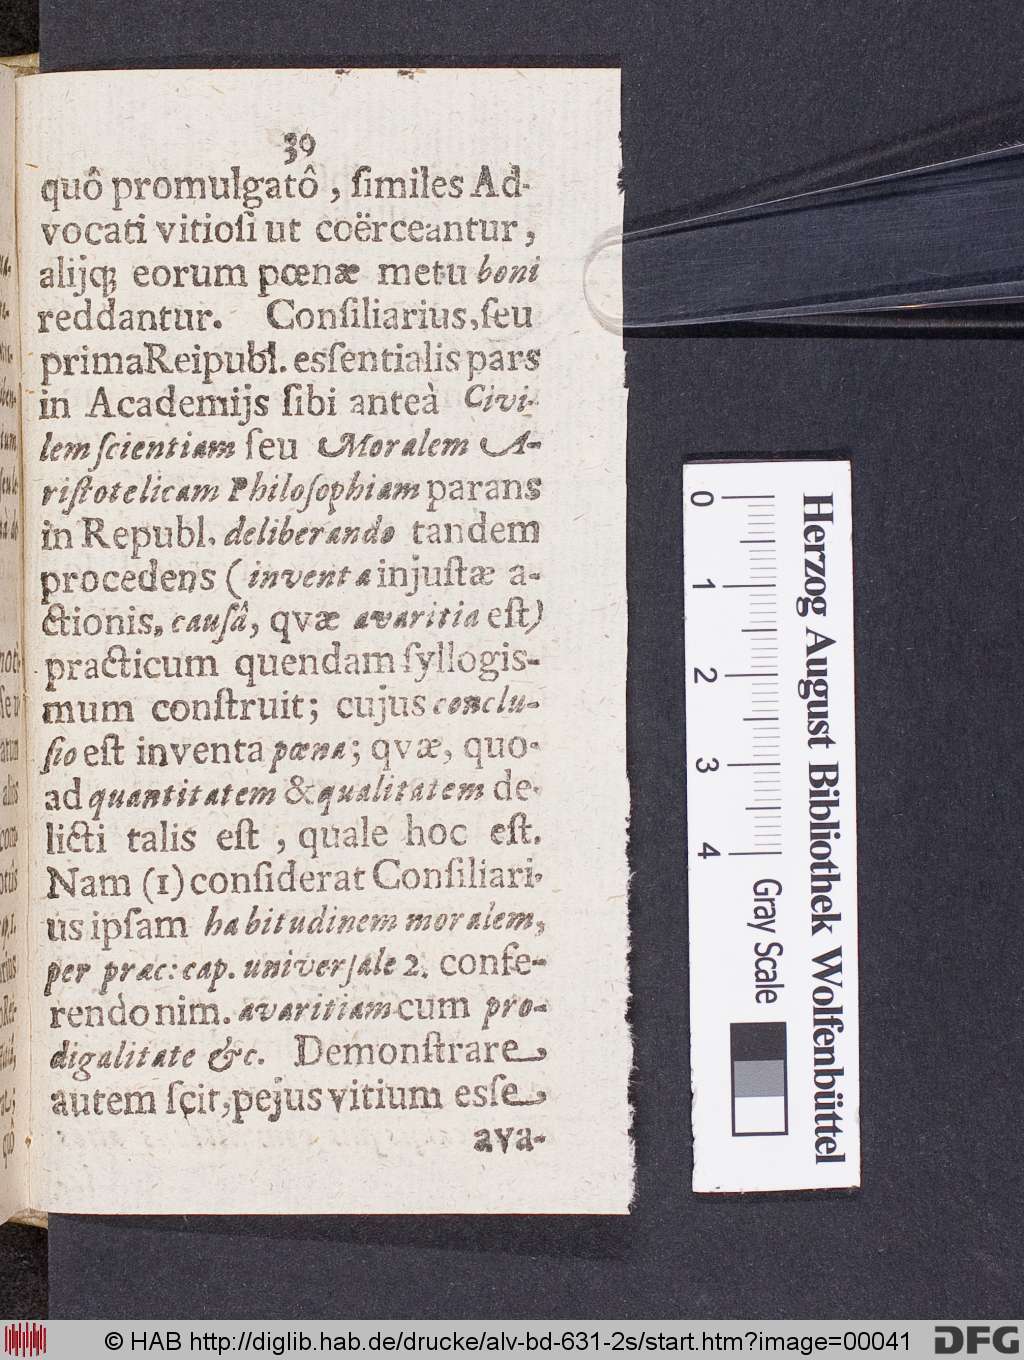 39
quô promulgatô, ſimiles Ad-
vocati vitioſi ut coërceantur,
alijq; eorum pœnæ metu boni
reddantur. Conſiliarius, ſeu
prima Reipubl. esſentialis pars
in Academijs ſibi anteà Civi-
lem ſcientiam ſeu Moralem A-
riſtotelicam Philoſophiam parans
in Republ. deliberando tandem
procedens (inventa injuſtæ a-
ctionis, cauſâ, qvæ avaritia eſt)
practicum quendam ſyllogis-
mum conſtruit; cujus conclu-
ſio eſt inventa pœna; qvæ, quo-
ad quantitatem & qualitatem de-
licti talis eſt, quale hoc eſt.
Nam (1) conſiderat Conſiliari-
us ipſam habitudinem moralem,
per præc: cap. univerſale 2. confe-
rendo nim. avaritiam cum pro-
digalitate &c. Demonſtrare
autem ſcit, pejus vitium esſe
ava-
Herzog August Bibliothek Wolfenbüttel
0 1 2 3 4
Gray Scale
© HAB http://diglib.hab.de/drucke/alv-bd-631-2s/start.htm?image=00041
DFG